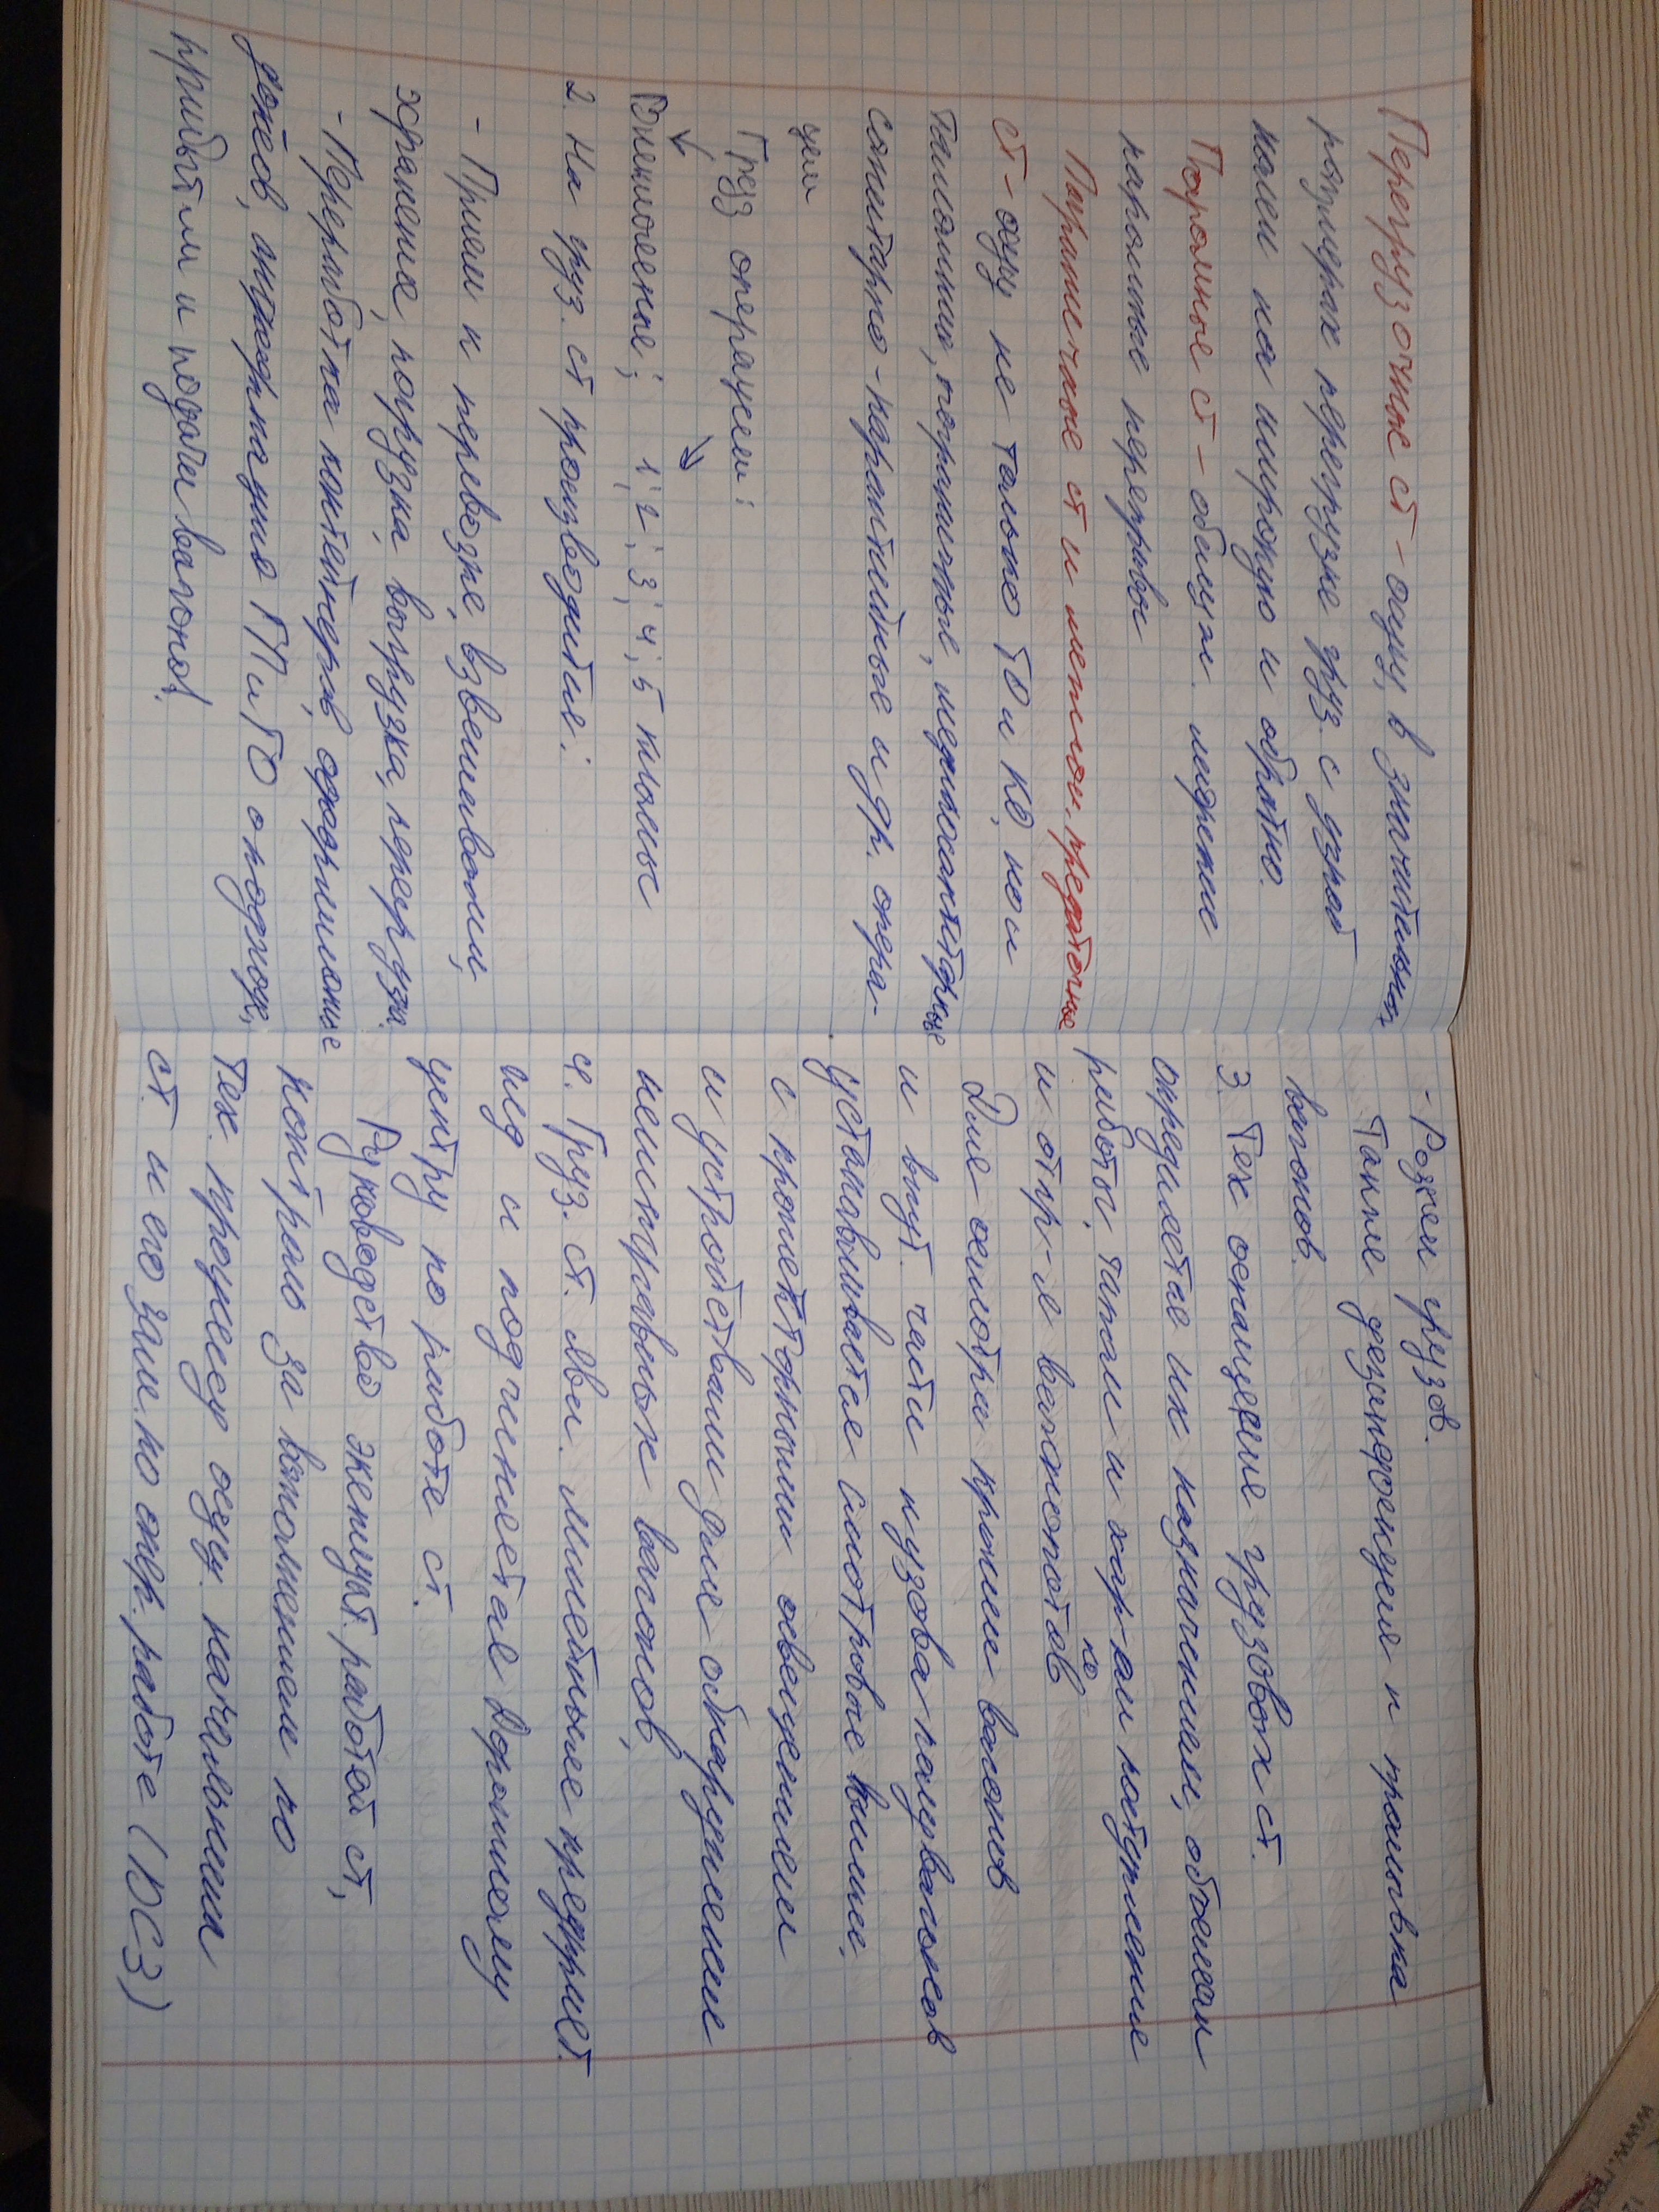 Перегрузочные ст - осущ. в значительных
размерах перегрузке груз. с узкой
колеи на широкую и обратно.
Паромные ст - обслуж. морские
паромные перепр
Пограничные ст и межгос. передаточные
ст - осущ не только ТО и КО, но и
таможни, пограничные, медсанитарные
санитарно-карантийные и др. опера-
ции
Груз операции:
Внешненные; 1; 2; 3; 4; 5 классы
2. На груз. ст производится:
- Прием к перевозке, взвешивание,
хранение, погрузка, выгрузка, перегрузка.
- Переработка контейнеров, оформление
доков, информация ГП и ГО о подходе,
прибытии и подачи вагонов.
- Розжем грузов.
Также дезинфекция и промывка
вагонов.
3. Тех оснащение грузовых ст.
определяется их назначением, объемом
работы, типом и хар-ом погружение
и отпр-е вагонопотов
ко
Для осмотра крыши вагонов
и внут. части кузова полувагонов
устанавливается смотровые вышке,
с прожекторными освещением
и устройствами для обнаружение
неисправных вагонов,
4. Груз. ст. явл. линейные предприет.
жд и подчиняется Дорожному
центру по работе ст.
Руководство эксплуат. работой ст,
контроль за выполнением по
тех. процессу осущ. начальники
ст. и его зам. по опер. работе (ДСЗ)
www.